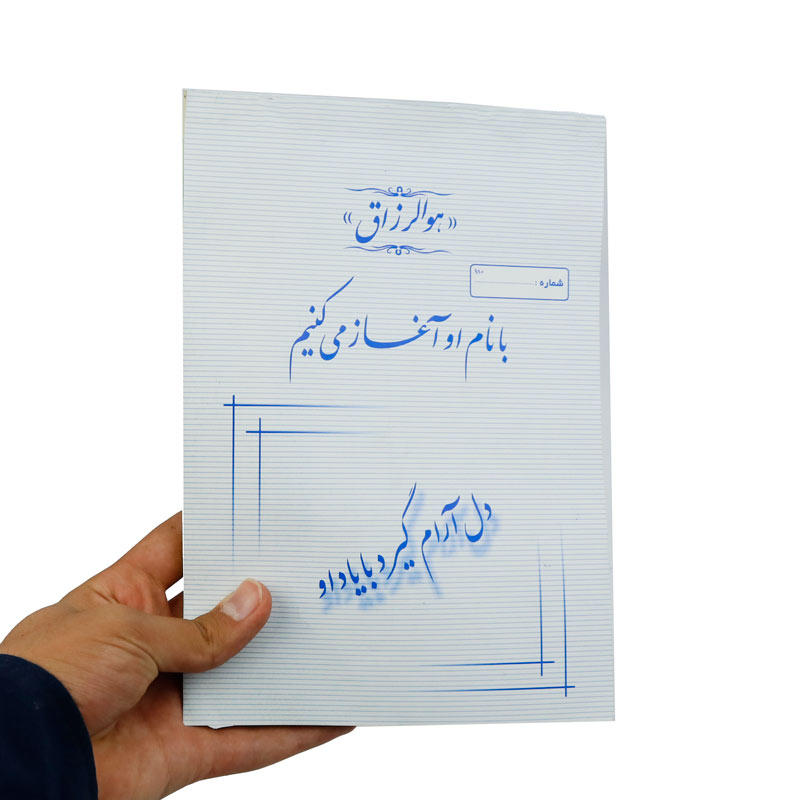 «هوالرزاق»
شماره : ............ ۹۸۰
با نام او آغاز می کنیم
دل آرام گیرد با یاد او